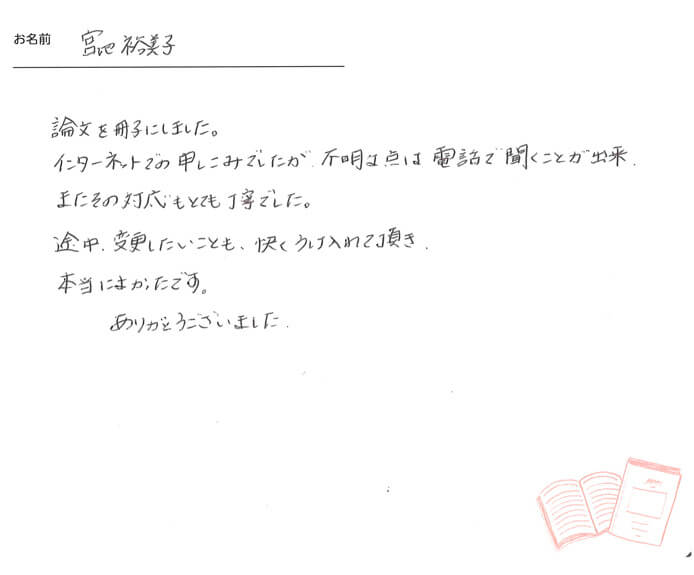 お名前 宮地 裕美子
論文を冊子にしました。
インターネットでの申しこみでしたが、不明な点は電話で聞くことが出来、
またその対応もとても丁寧でした。
途中、変更したいことも、快くうけ入れて頂き、
本当によかったです。
ありがとうございました。